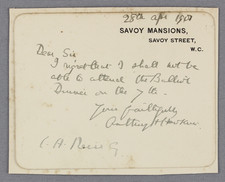 28th Apr 1901
SAVOY MANSIONS,
SAVOY STREET,
W.C.
Dear Sir
I regret that I shall not be
able to attend the Ballad
Dinner on the 7th.
Yours faithfully
Anthony H Hawkins
C. A.